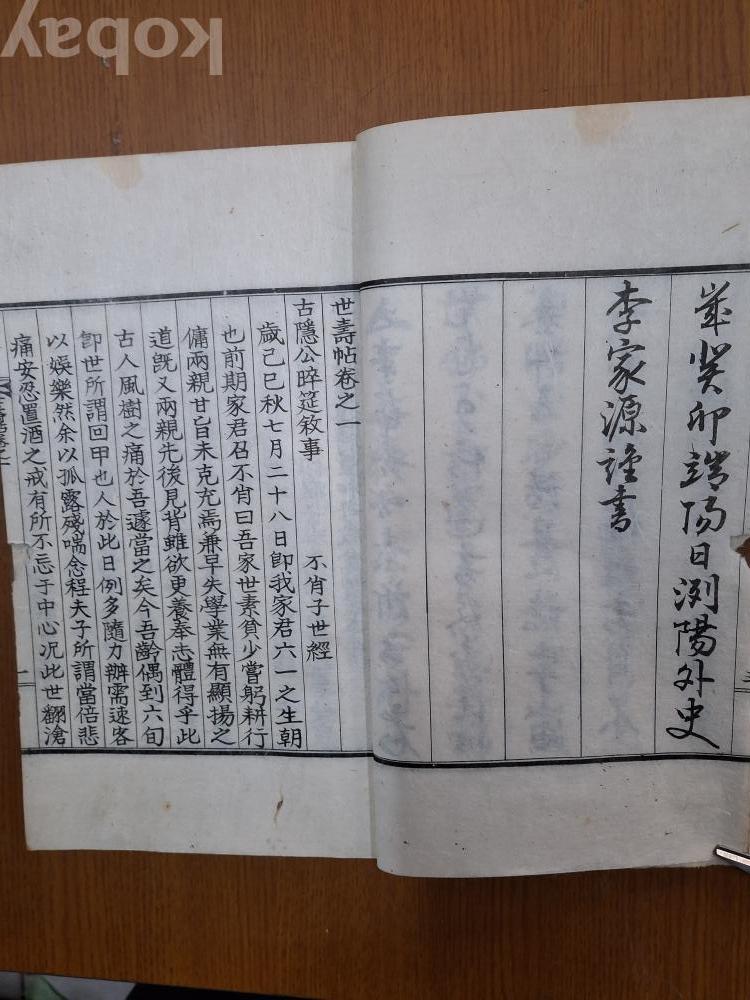 kobay
歲癸卯端陽日洌陽外史
李家源謹書
世壽帖卷之一
古隱公晬筵敘事 不肖子世經
歲己巳秋七月二十八日卽我家君六一之生朝
也前期家君召不肖曰吾家世素貧少嘗躬耕行
傭兩親甘旨未克充焉兼早失學業無有顯揚之
道旣又兩親先後見背雖欲更養奉志體得乎此
古人風樹之痛於吾遽當之矣今吾齡偶到六旬
卽世所謂回甲也人於此日例多隨力辦需速客
以娛樂然余以孤露殘喘念程夫子所謂當倍悲
痛安忍置酒之戒有所不忘于中心况此世翻滄
一